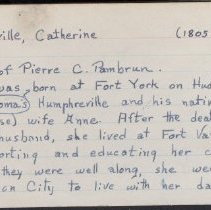 ville, Catherine (1805
of Pierre C. Pambrun.
was born at Fort York on Hud
omas Humphreville and his nativ
se) wife Anne. After the deat
husband, she lived at Fort Va
orting and educating her c
they were well along, she wen
on City to live with her da